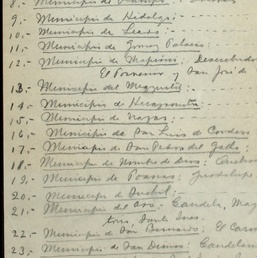 8.- Municipio de Ocampo:
9.- Municipio de Hidalgo:
10.- Municipio de Lerdo:
11.- Municipio de Gomez Palacio:
12.- Municipio de Mapimi: Descubridora
El Porvenir y San José de
13.- Municipio del Mezquital:
14.- Municipio de
15.- Municipio de Nazas:
16.- Municipio de San Luis de Cordero
17.- Municipio de San Pedro del Gallo:
18.- Municipio de Nombre de Dios:
19.- Municipio de Poanas: Guadalupe
20.- Municipio de Suchil:
21.- Municipio del Oro: Candela, Mag
tres, Santa
22.- Municipio de San Bernardo: El
23.- Municipio de San Dimas: Candelaria